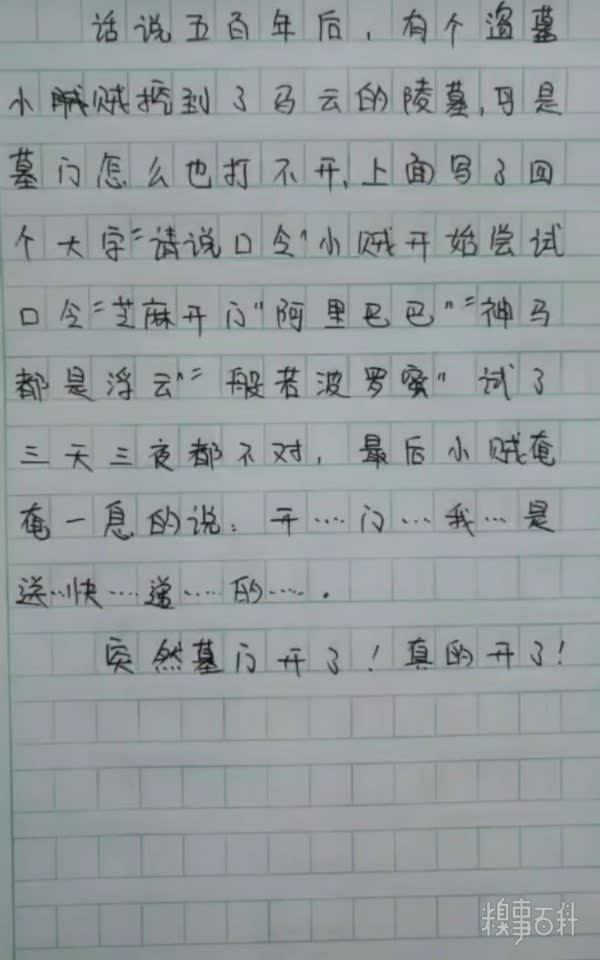 话说五百年后，有个盗墓
小贼挖到了马云的陵墓，可是
墓门怎么也打不开，上面写了四
个大字“请说口令”小贼开始尝试
口令“芝麻开门”“阿里巴巴”“神马
都是浮云”“般若波罗蜜”试了
三天三夜都不对，最后小贼奄
奄一息的说：开……门……我……是
送……快……递……的……．
突然墓门开了！真的开了！
糗事百科